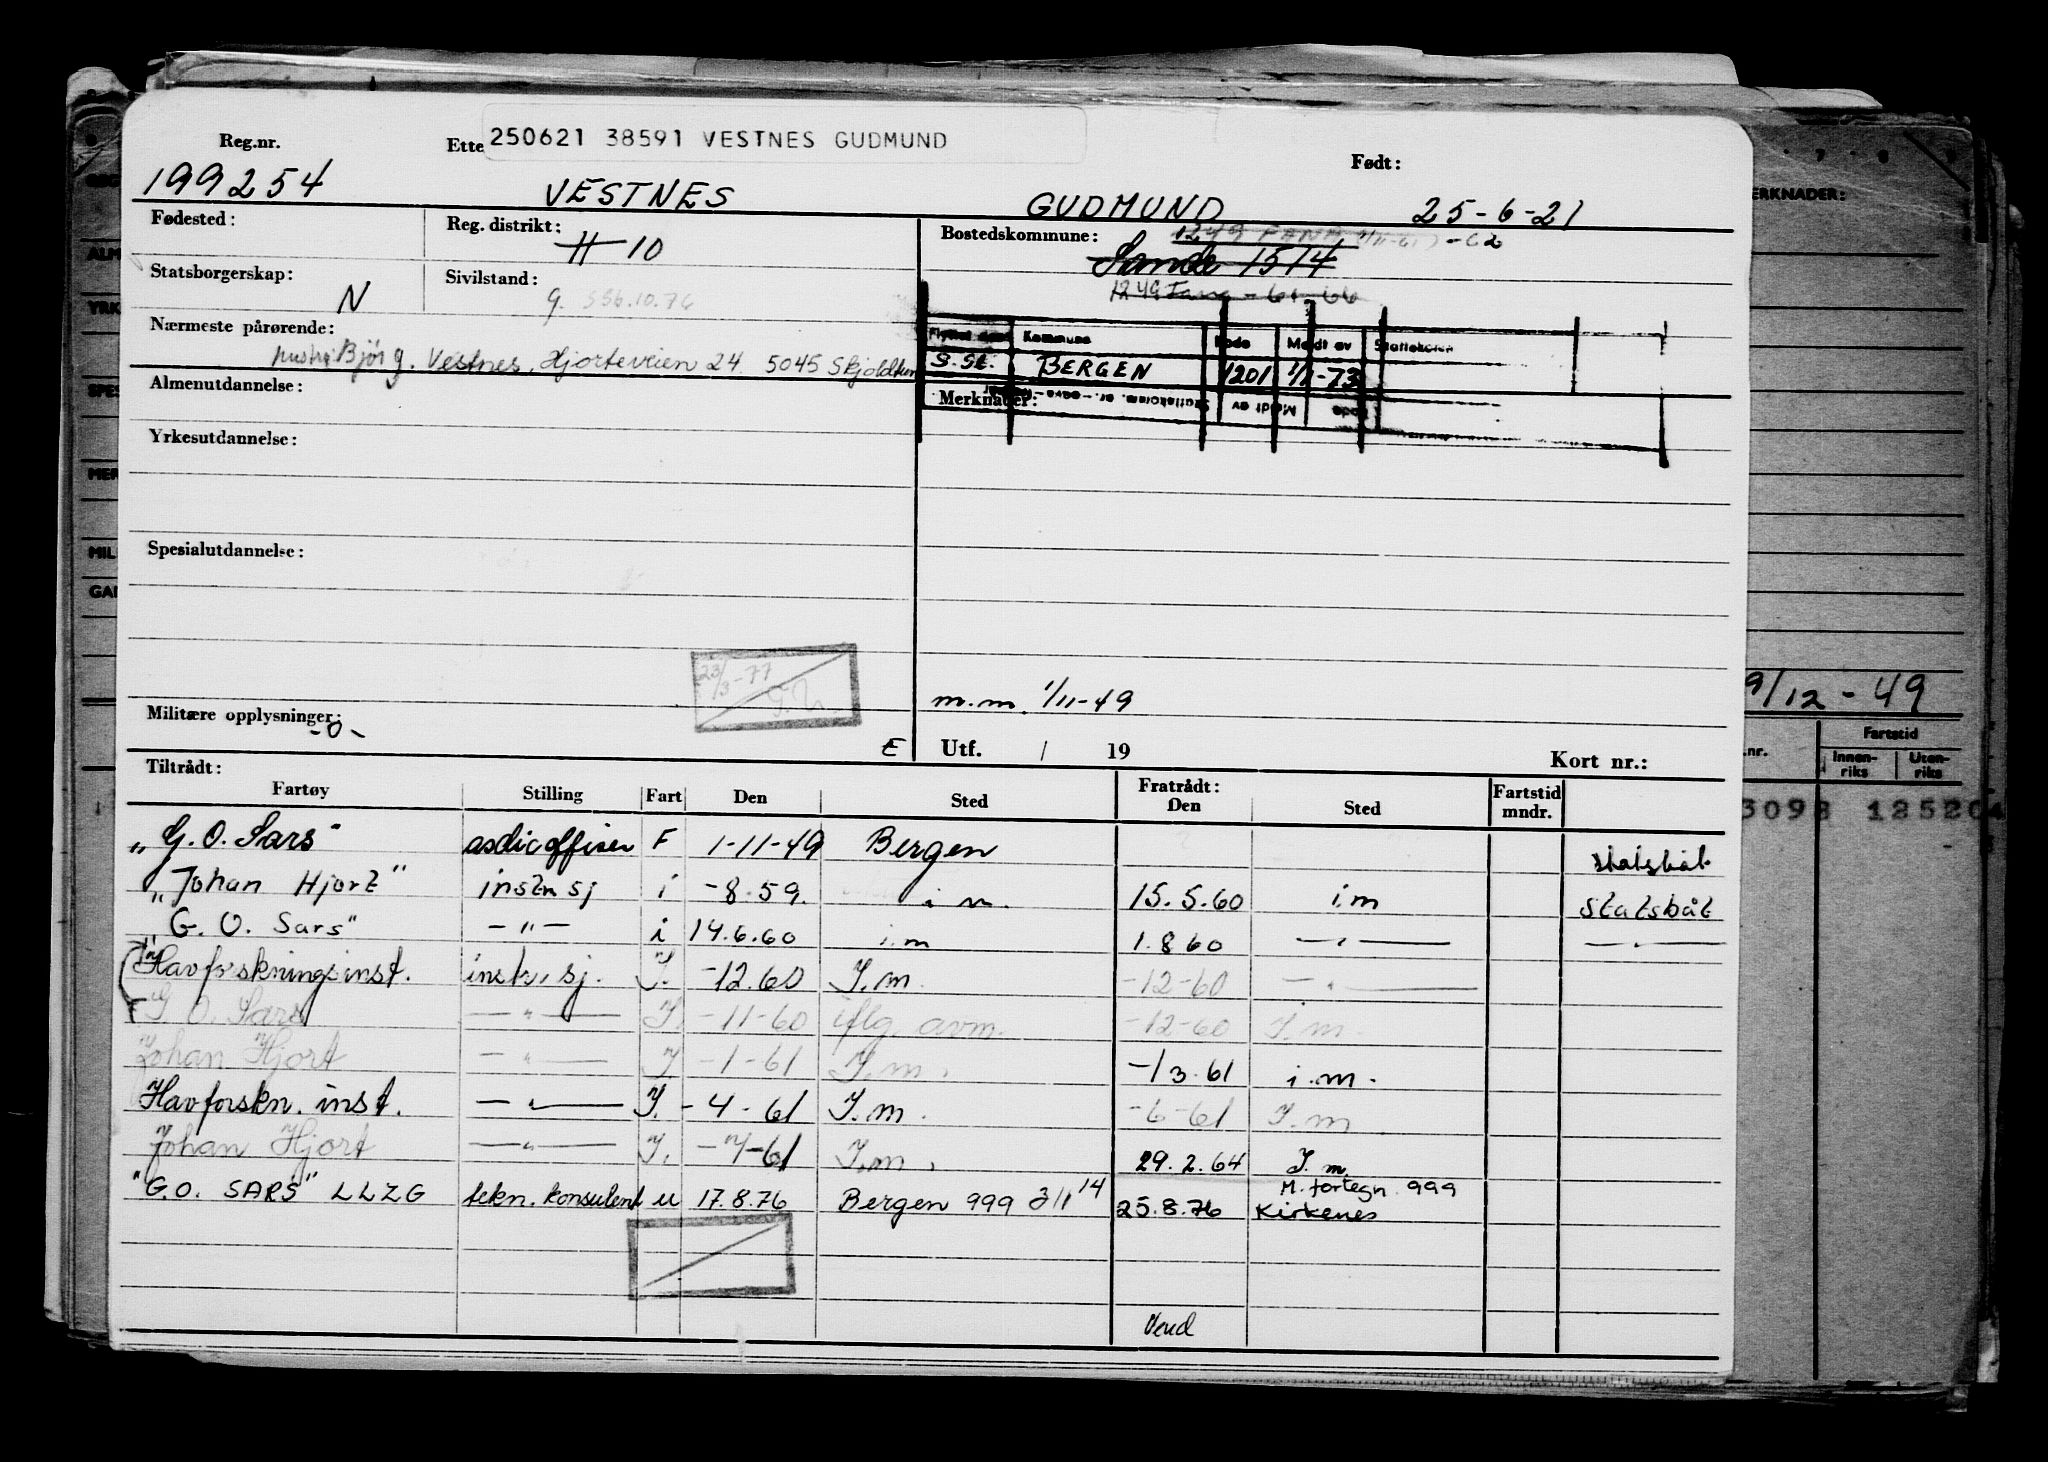 250621 38591 VESTNES GUDMUND
Reg.nr. Ette Født:
199254 VESTNES GUDMUND 25-6-21
Fødested: Reg. distrikt: H 10 Bostedskommune:
Sande 1514
Statsborgerskap: N Sivilstand: g. S56.10.76
1249 Fana - 61 - 66
Nærmeste pårørende: Kommune Kode Meldt av
hustru Bjørg. Vestnes, Hjorteveien 24. 5045 Skjoldtun
S.St. BERGEN 1201 1/1-73
Almenutdannelse: Merknader:
Yrkesutdannelse:
Spesialutdannelse:
23/3-77
m.m. 1/11-49
Militære opplysninger: -0-
E Utf. / 19 Kort nr.:
Tiltrådt: Fratrådt:
Fartøy Stilling Fart Den Sted Den Sted Fartstid mndr.
"G. O. Sars" asdicoffiser F 1-11-49 Bergen statsbåt
"Johan Hjort" instr sj i -8.59. i.m. 15.5.60 i.m statsbåt
"G. O. Sars" -"- i 14.6.60 i.m 1.8 60 -"- -"-
Havforskningsinst. instr. sj. I. -12.60 I.m. -12-60 -"-
G O. Sars -"- I. -11-60 iflg. avm. -12-60 I.m.
Johan Hjort -"- I -1-61 I.m. -13.61 i.m.
Havforskn. inst. -"- I. -4-61 I.m. -6-61 I.m
Johan Hjort -"- I. -7-61 I.m. 29.2.64 I.m.
"G.O. SARS" LLZG tekn. konsulent u 17.8.76 Bergen 999 311 14 25.8.76 M. fortegn. 999 Kirkenes
Vend
ERKNADER:
9/12-49
.nr. Fartstid
Innen-riks Uten-riks
3098 125204